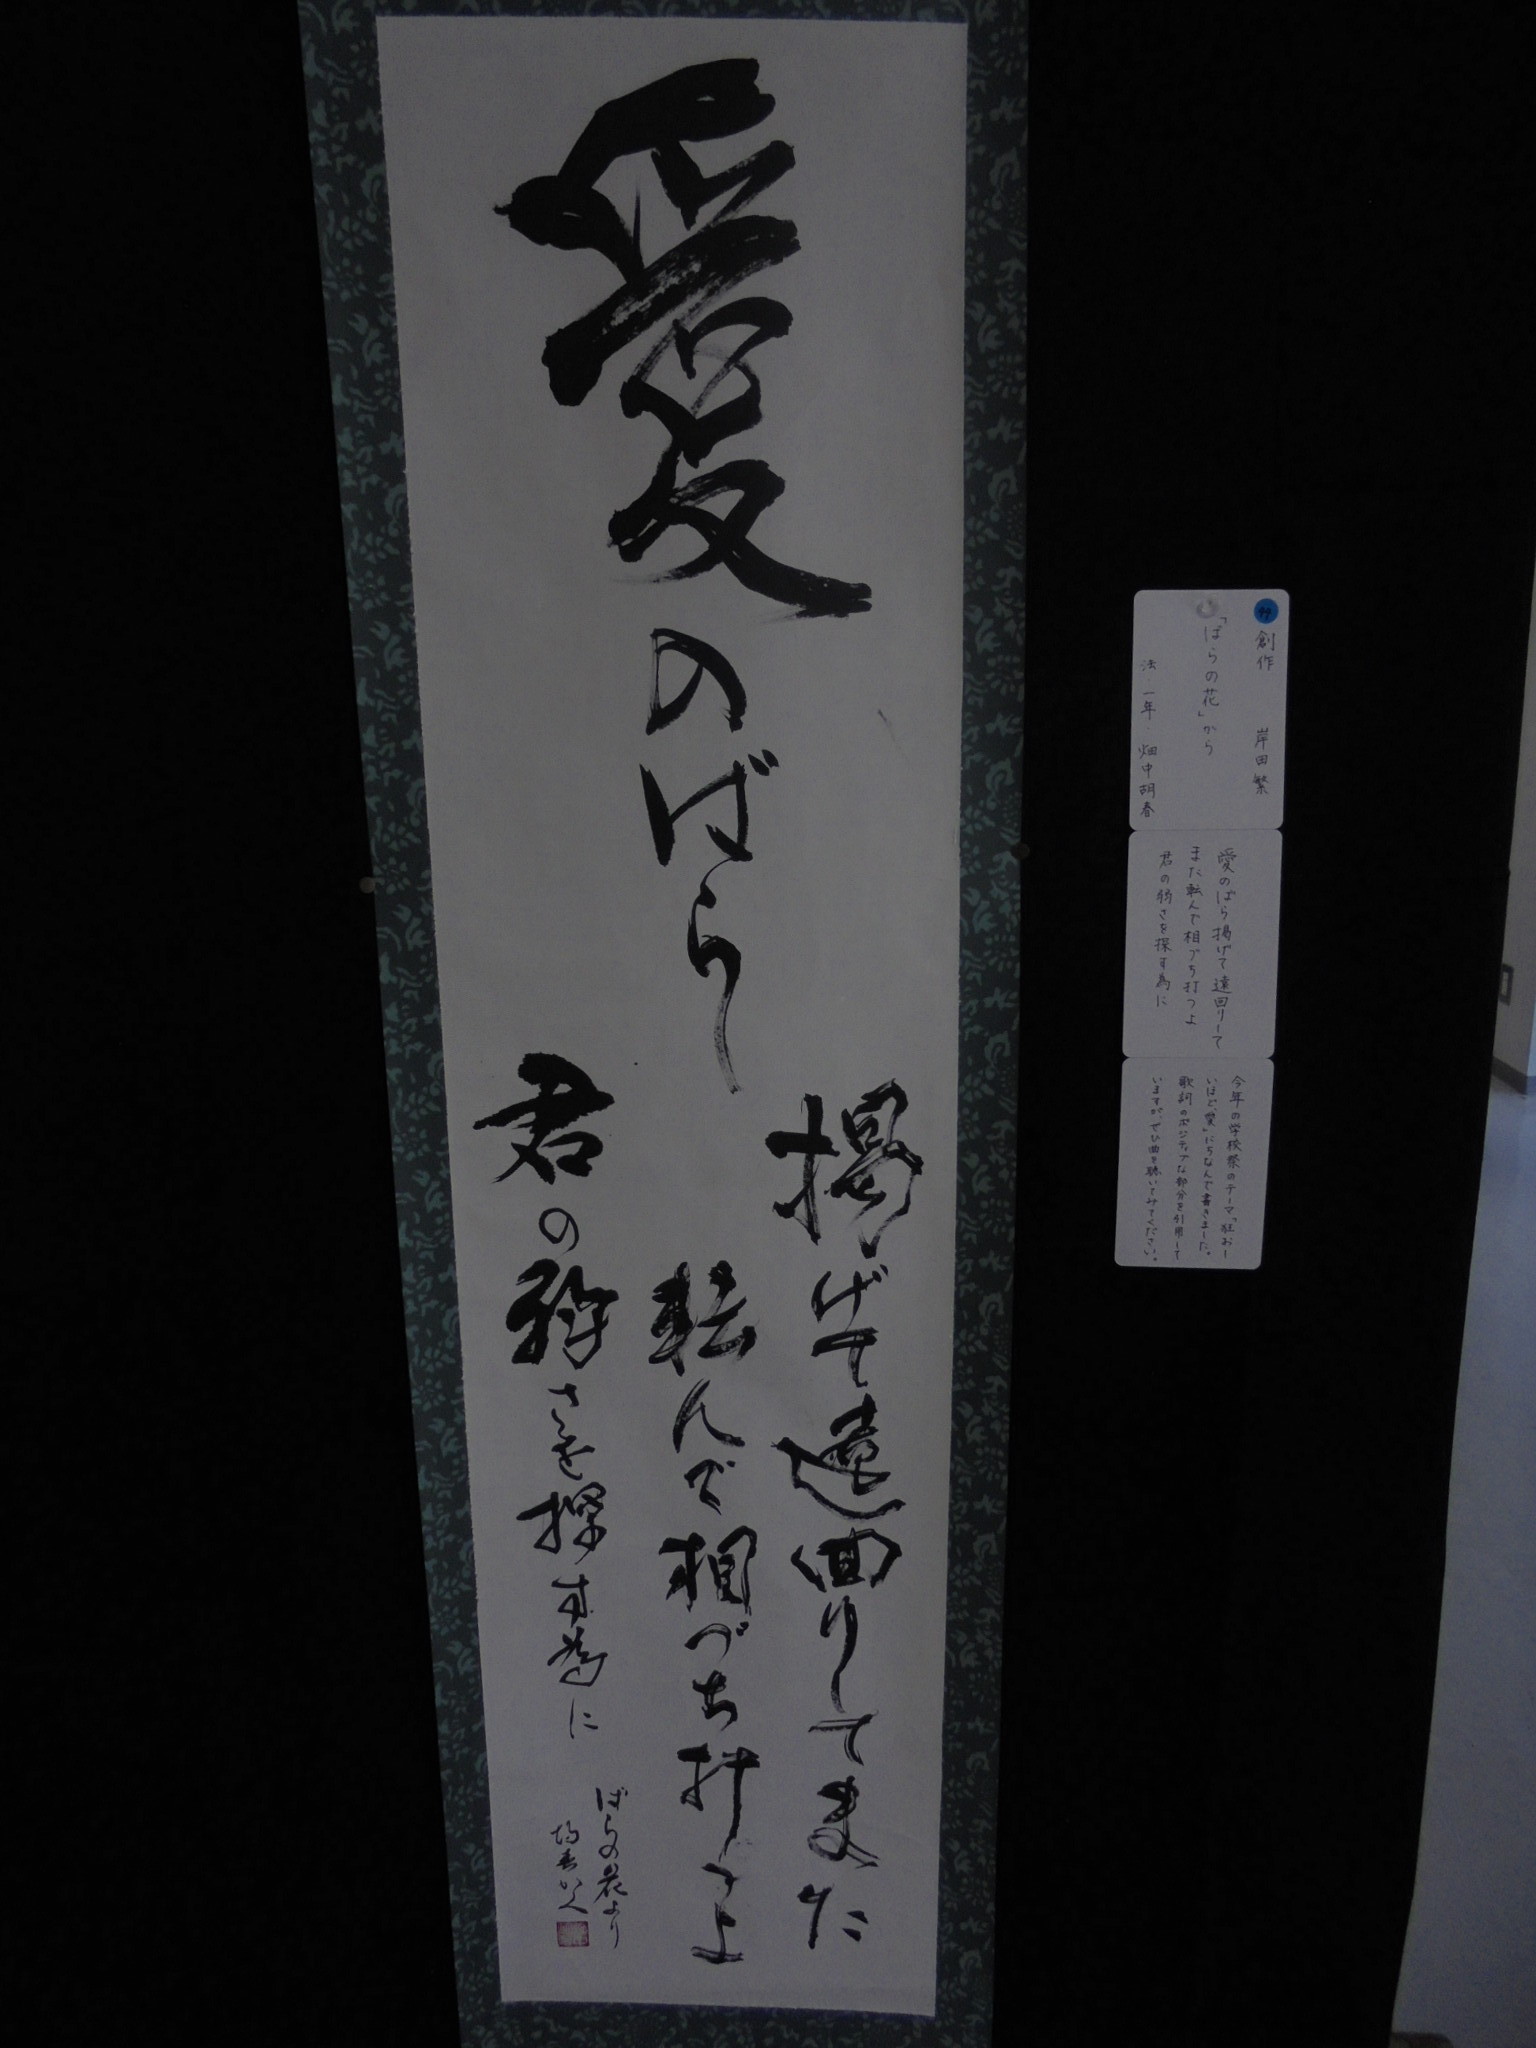 愛のばら
掲げて遠回りしてまた
転んで相づち打つよ
君の弱さを探す為に
ばらの花より
44 創作 岸田繁
「ばらの花」から
法・一年・畑中胡春
愛のばら掲げて遠回りして
また転んで相づち打つよ
君の弱さを探す為に
今年の学校祭のテーマ「狂おし
いほど、愛」にちなんで書きました。
歌詞のポジティブな部分を引用して
いますが、ぜひ曲を聴いてみてください。